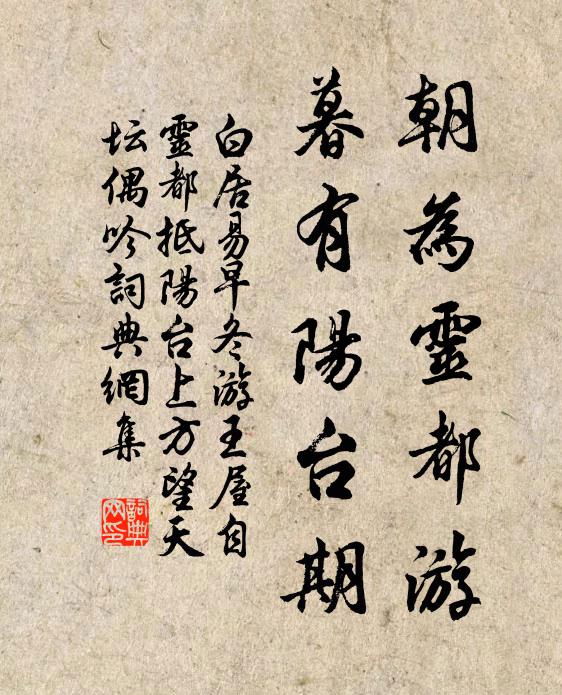 朝為靈都游
暮有陽台期
白居易早冬游王屋自
靈都抵陽台上方望天
坛偶吟詞典網集
詞典
网印